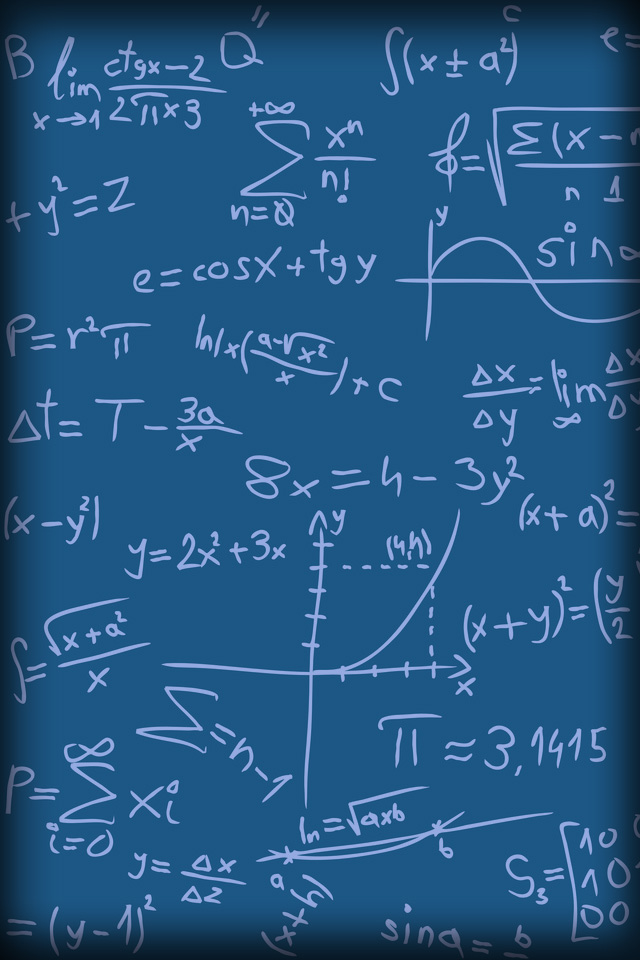 B lim x→1 (ctgx−2)/(2πx3) Q" ∫(x±a²) c e=
∑ n=0 +∞ xⁿ/n!
=√Σ(x−n n 1
+y²=Z
y sinα
e=cosx+tgy
P=r²π ln/x((a-√x²)/x)+c
Δx/Δy=lim ∞ Δx/Δy
Δt=T−3a/x
8x=4−3y²
(x−y²) (x+a)²=
y=2x²+3x y (4,4)
(x+y)²=(y/2
∫=√x+a²/x x
∑=n-1 π≈3,1415
P=∑ i=0 ∞ xi
ln=√axb
y=Δx/Δz a b S₃=[10
10
00
=(y−1)² (x+ sina=b